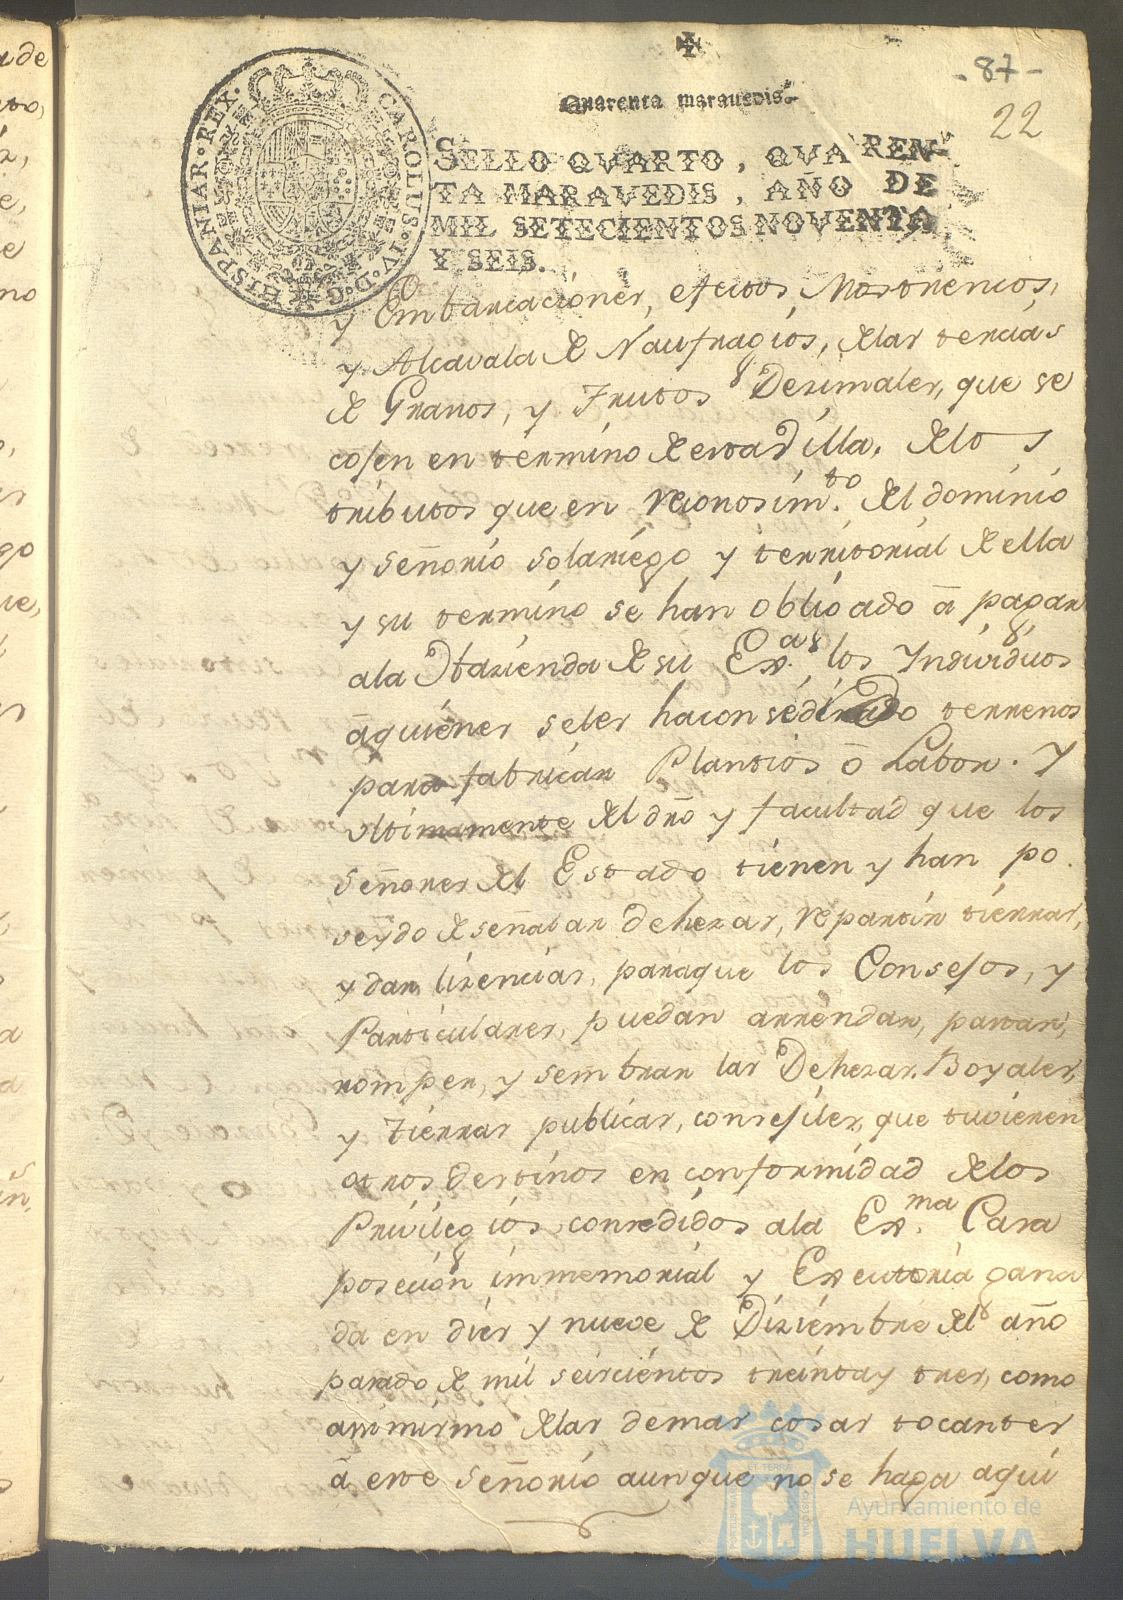 -87-
22
Quarenta marauedis.
SELLO QVARTO, QVAREN-
TA MARAVEDIS, AÑO DE
MIL SETECIENTOS NOVENTA
Y SEIS.
CAROLUS·IV·D·G·HISPANIAR·REX·
y Embarcaciones, efectos Mostrencos,
y Alcavala de Naufragios, delas tercias
de Granos, y Frutos Dezimales, que se
cojen en termino de esta Villa. Delos
tributos que en reconosim.to del dominio
y señorio solariego y territorial de ella
y su termino se han obligado â pagar
ala Hazienda de su Ex.as los Individuos
âquienes seles ha consedido terrenos
para fabricar Plantios ô Labor. Y
ultimamente del dño y facultad que los
señores del Estado tienen y han po.
seydo de señalar dehezas, repartir tierras,
y dar lizencias, paraque los Consejos, y
Particulares, puedan arrendar, pastar,
romper, y sembrar las Dehezas Boyales,
y Tierras publicas, consejiles, que tuvieren
otros destinos en conformidad delos
Privilegios consedidos ala Ex.ma Casa
poseción immemorial y Executoria gana
da en dies y nueve de Diziembre del año
pasado de mil seiscientos treinta y tres, como
assimismo delas demas cosas tocantes
â este señorio aunque no se haga aqui
Ayuntamiento de
HUELVA